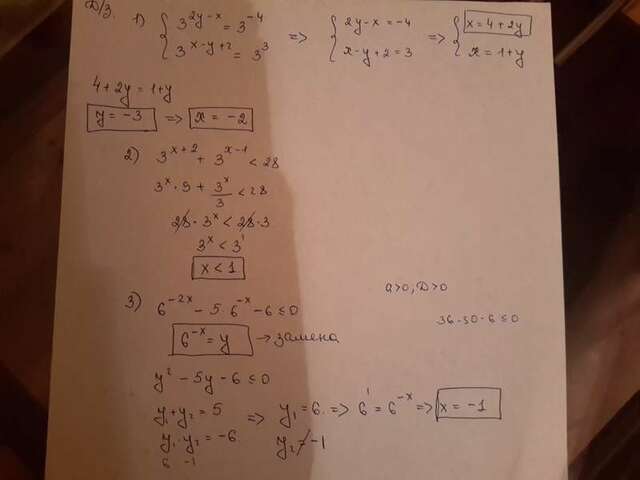 Д/з.
1) { 3^{2y-x} = 3^{-4} => { 2y-x = -4 => { x = 4+2y
{ 3^{x-y+2} = 3^3 { x-y+2 = 3 { x = 1+y
4+2y = 1+y
y = -3 => x = -2
2) 3^{x+2} + 3^{x-1} < 28
3^x · 9 + 3^x/3 < 28
28 · 3^x < 28 · 3
3^x < 3^1
x < 1
a>0, D>0
3) 6^{-2x} - 5 6^{-x} - 6 ≤ 0
36-30-6 ≤ 0
6^{-x} = y → замена
y^2 - 5y - 6 ≤ 0
y_1 + y_2 = 5 => y_1 = 6. => 6^1 = 6^{-x} => x = -1
y_1 · y_2 = -6 y_2 = -1
6 -1